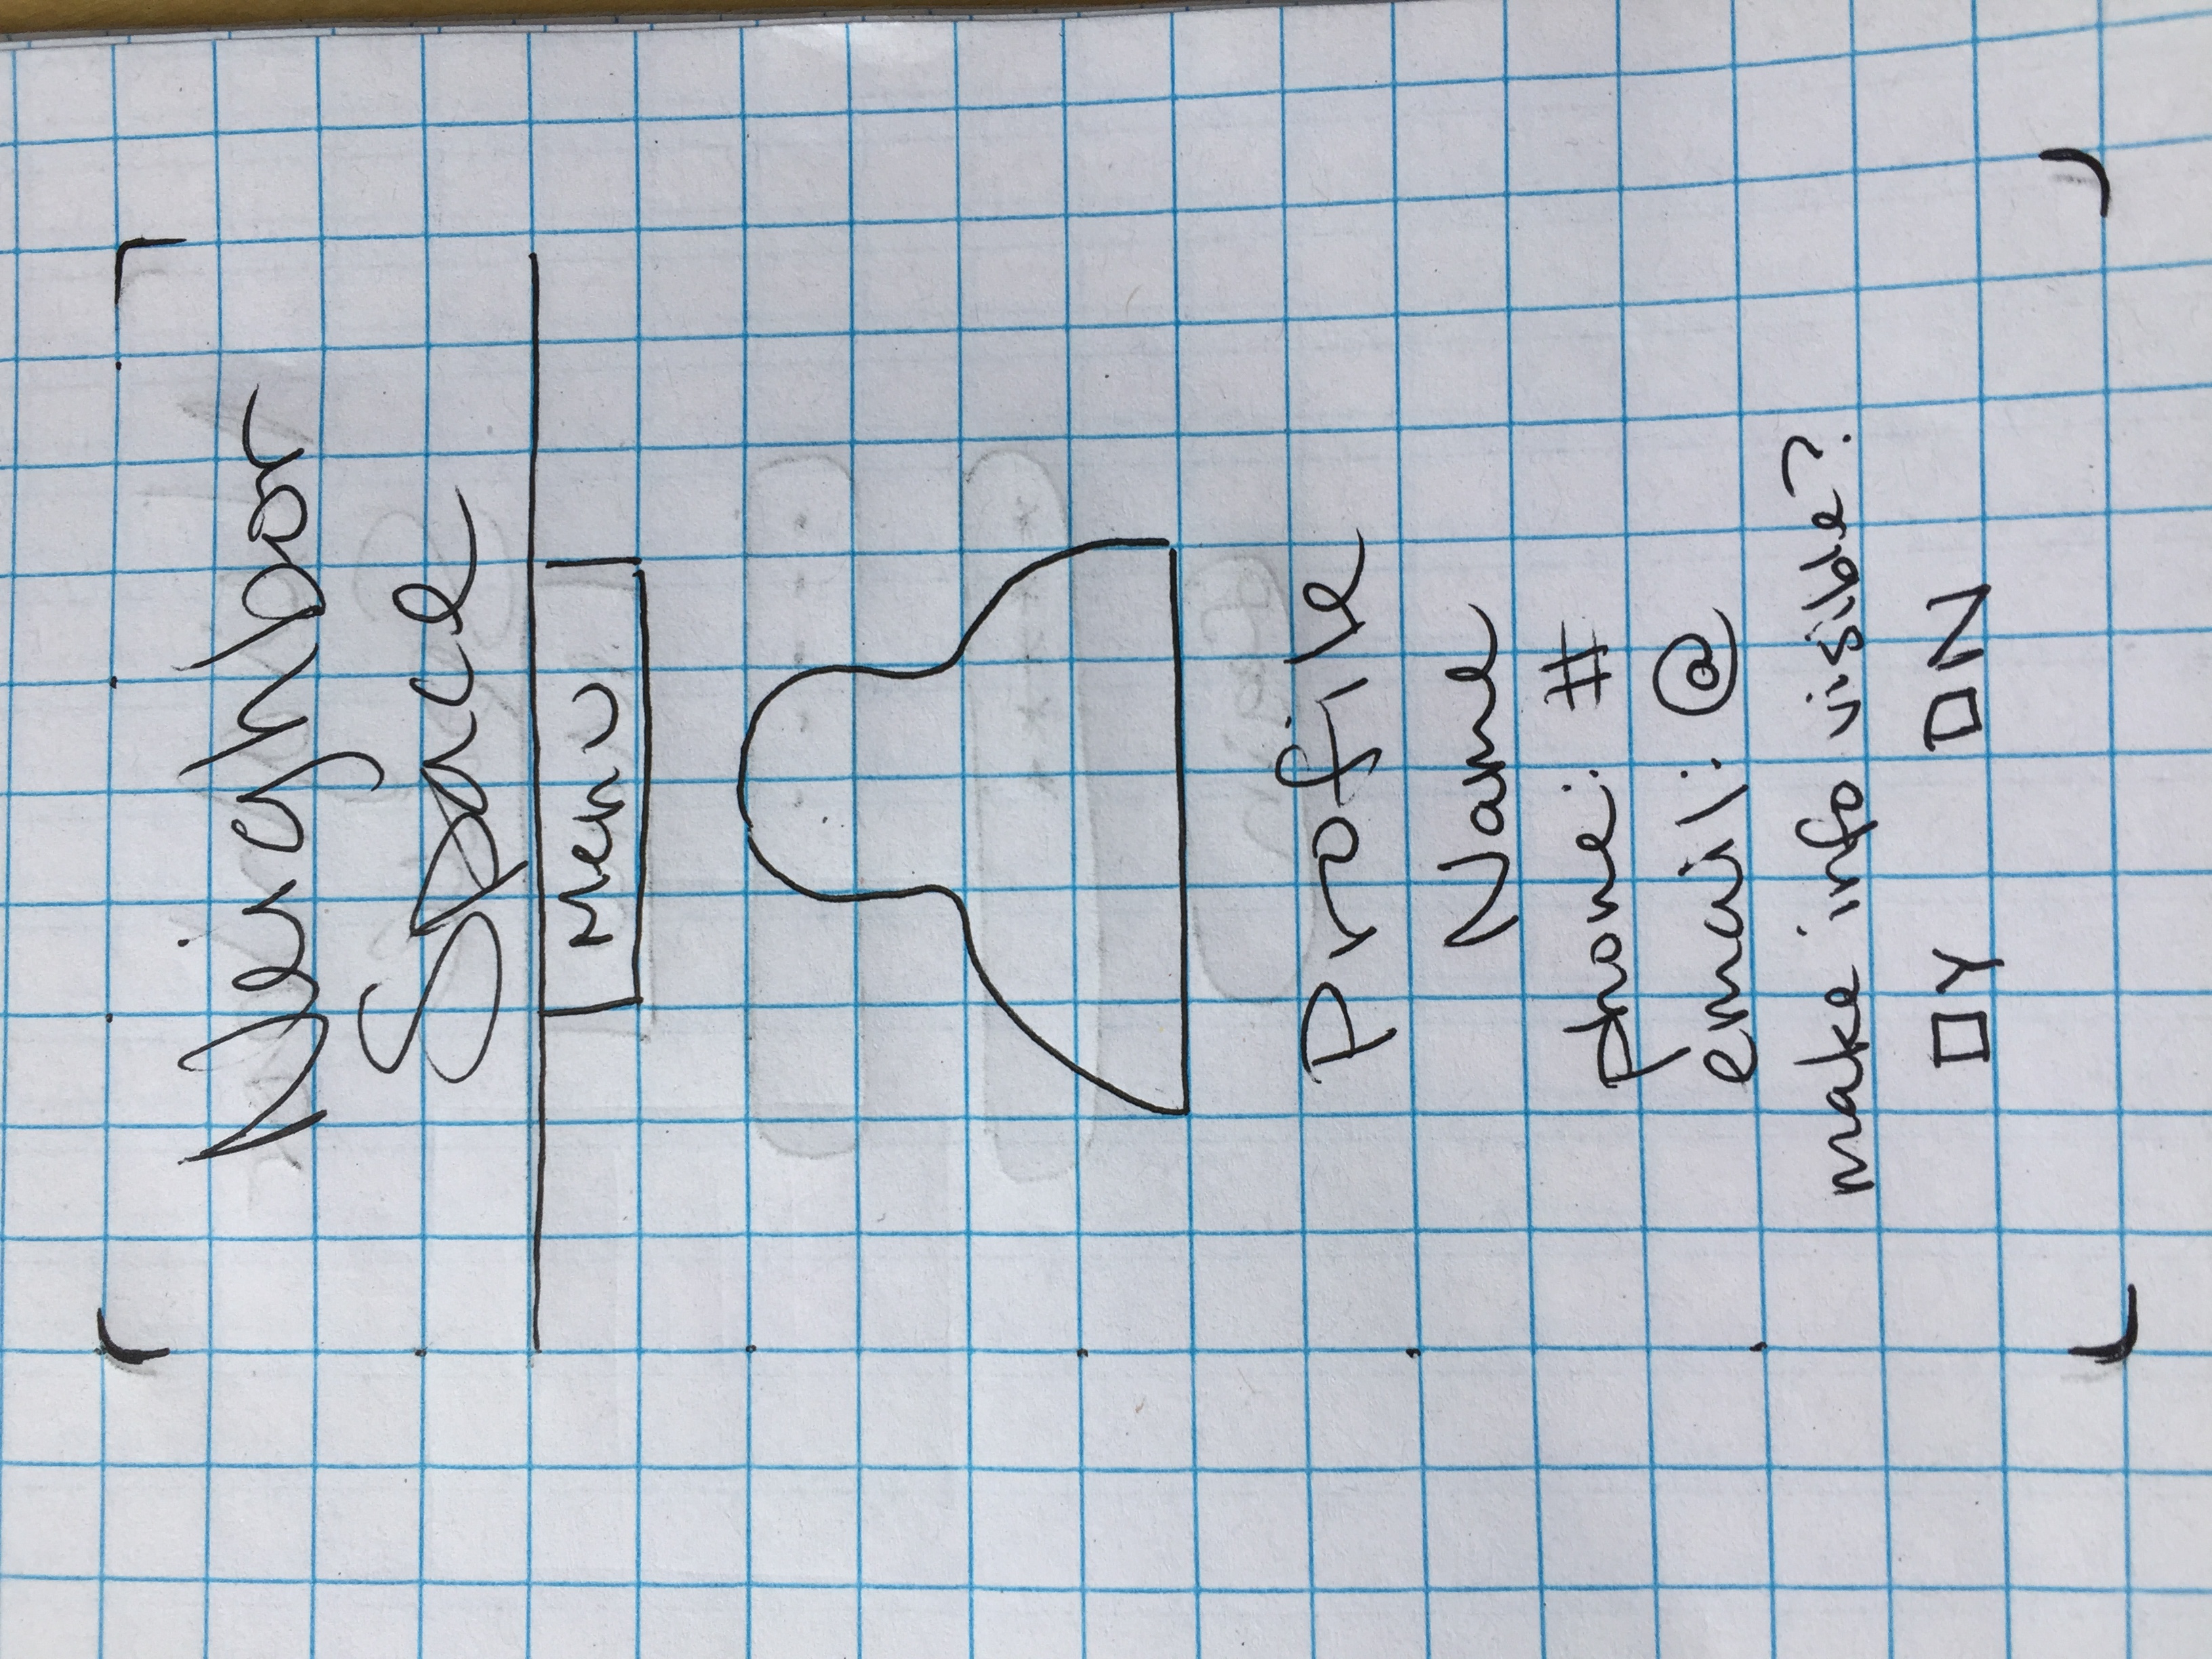 Neighbor
Space
Menu
Profile
Name
phone: #
email: @
make info visible?
□Y □N